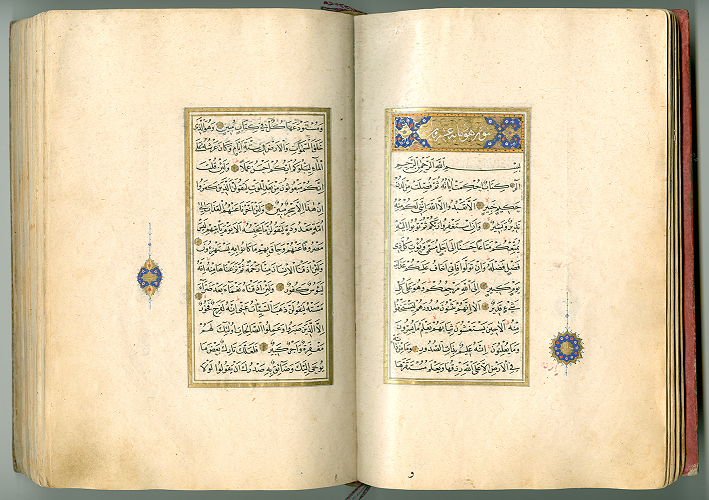 سورة هود مايه وعشرون
بِسْمِ اللَّهِ الرَّحْمٰنِ الرَّحِيمِ
الٓر كِتَابٌ اُحْكِمَتْ اٰيَاتُهُ ثُمَّ فُصِّلَتْ مِنْ لَدُنْ
حَكِيمٍ خَبِيرٍ اَلَّا تَعْبُدُوا اِلَّا اللَّهَ اِنَّنِي لَكُمْ مِنْهُ
نَذِيرٌ وَبَشِيرٌ وَاَنِ اسْتَغْفِرُوا رَبَّكُمْ ثُمَّ تُوبُوا اِلَيْهِ
يُمَتِّعْكُمْ مَتَاعًا حَسَنًا اِلٰى اَجَلٍ مُسَمًّى وَيُؤْتِ كُلَّ ذِي
فَضْلٍ فَضْلَهُ وَاِنْ تَوَلَّوْا فَاِنِّي اَخَافُ عَلَيْكُمْ عَذَابَ
يَوْمٍ كَبِيرٍ اِلَى اللَّهِ مَرْجِعُكُمْ وَهُوَ عَلٰى كُلِّ
شَيْءٍ قَدِيرٌ اَلَا اِنَّهُمْ يَثْنُونَ صُدُورَهُمْ لِيَسْتَخْفُوا
مِنْهُ اَلَا حِينَ يَسْتَغْشُونَ ثِيَابَهُمْ يَعْلَمُ مَا يُسِرُّونَ
وَمَا يُعْلِنُونَ اِنَّهُ عَلِيمٌ بِذَاتِ الصُّدُورِ وَمَا مِنْ دَابَّةٍ
فِي الْاَرْضِ اِلَّا عَلَى اللَّهِ رِزْقُهَا وَيَعْلَمُ مُسْتَقَرَّهَا
و
وَمُسْتَوْدَعَهَا كُلٌّ فِي كِتَابٍ مُبِينٍ وَهُوَ الَّذِي
خَلَقَ السَّمٰوَاتِ وَالْاَرْضَ فِي سِتَّةِ اَيَّامٍ وَكَانَ عَرْشُهُ عَلَى
الْمَاءِ لِيَبْلُوَكُمْ اَيُّكُمْ اَحْسَنُ عَمَلًا وَلَئِنْ قُلْتَ
اِنَّكُمْ مَبْعُوثُونَ مِنْ بَعْدِ الْمَوْتِ لَيَقُولَنَّ الَّذِينَ كَفَرُوا
اِنْ هٰذَا اِلَّا سِحْرٌ مُبِينٌ وَلَئِنْ اَخَّرْنَا عَنْهُمُ الْعَذَابَ اِلٰى
اُمَّةٍ مَعْدُودَةٍ لَيَقُولُنَّ مَا يَحْبِسُهُ اَلَا يَوْمَ يَاْتِيهِمْ لَيْسَ
مَصْرُوفًا عَنْهُمْ وَحَاقَ بِهِمْ مَا كَانُوا بِهِ يَسْتَهْزِؤُنَ
وَلَئِنْ اَذَقْنَا الْاِنْسَانَ مِنَّا رَحْمَةً ثُمَّ نَزَعْنَاهَا مِنْهُ اِنَّهُ
لَيَؤُسٌ كَفُورٌ وَلَئِنْ اَذَقْنَاهُ نَعْمَاءَ بَعْدَ ضَرَّاءَ
مَسَّتْهُ لَيَقُولَنَّ ذَهَبَ السَّيِّئَاتُ عَنِّي اِنَّهُ لَفَرِحٌ فَخُورٌ
اِلَّا الَّذِينَ صَبَرُوا وَعَمِلُوا الصَّالِحَاتِ اُولٰئِكَ لَهُمْ
مَغْفِرَةٌ وَاَجْرٌ كَبِيرٌ فَلَعَلَّكَ تَارِكٌ بَعْضَ مَا
يُوحٰى اِلَيْكَ وَضَائِقٌ بِهِ صَدْرُكَ اَنْ يَقُولُوا لَوْلَا